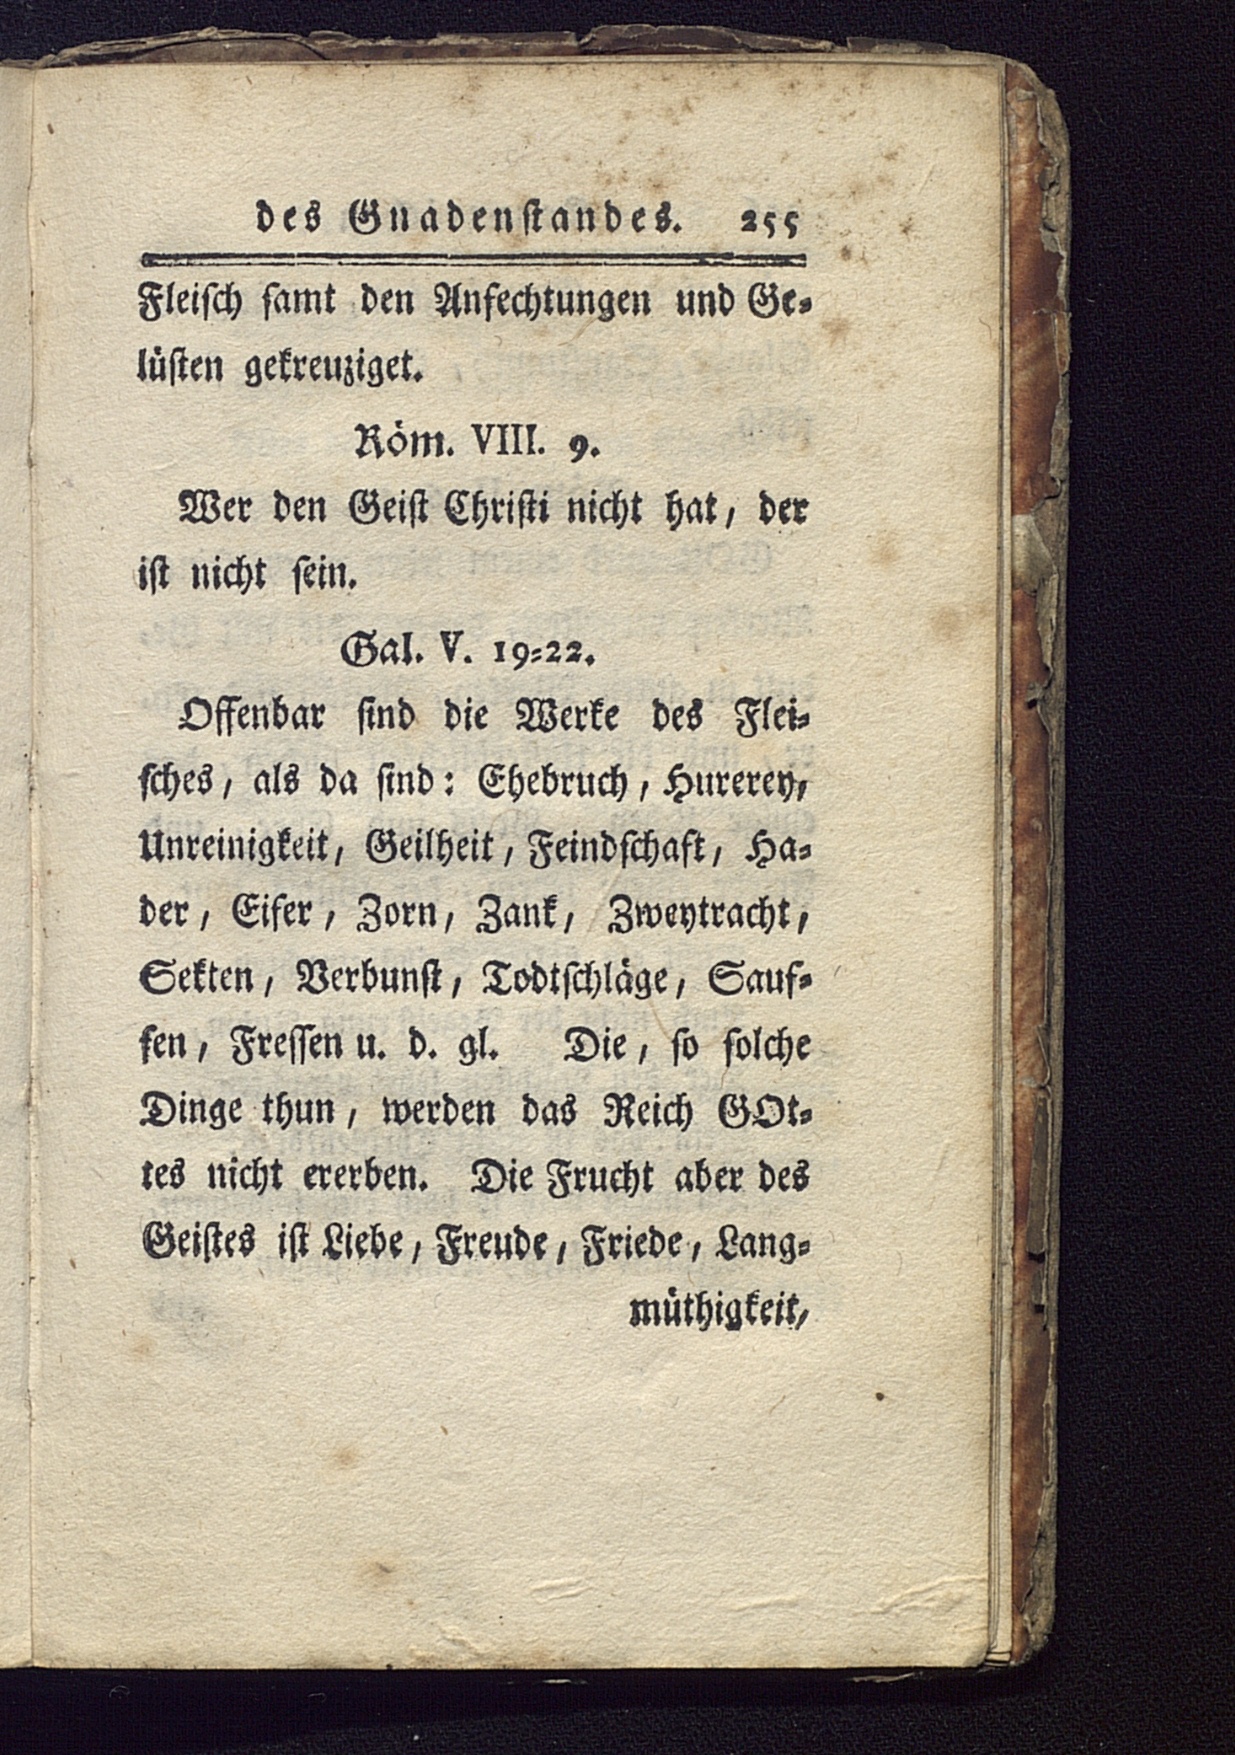 des Gnadenstandes. 255
Fleiſch ſamt den Anfechtungen und Ge⸗
lüſten gekreuziget.
Röm. VIII. 9.
Wer den Geiſt Chriſti nicht hat, der
iſt nicht ſein.
Gal. V. 19⸗22.
Offenbar ſind die Werke des Flei⸗
ſches, als da ſind: Ehebruch, Hurerey,
Unreinigkeit, Geilheit, Feindſchaft, Ha⸗
der, Eifer, Zorn, Zank, Zweytracht,
Sekten, Verbunſt, Todtſchläge, Sauf⸗
fen, Freſſen u. d. gl. Die, ſo ſolche
Dinge thun, werden das Reich GOt⸗
tes nicht ererben. Die Frucht aber des
Geiſtes iſt Liebe, Freude, Friede, Lang⸗
müthigkeit,